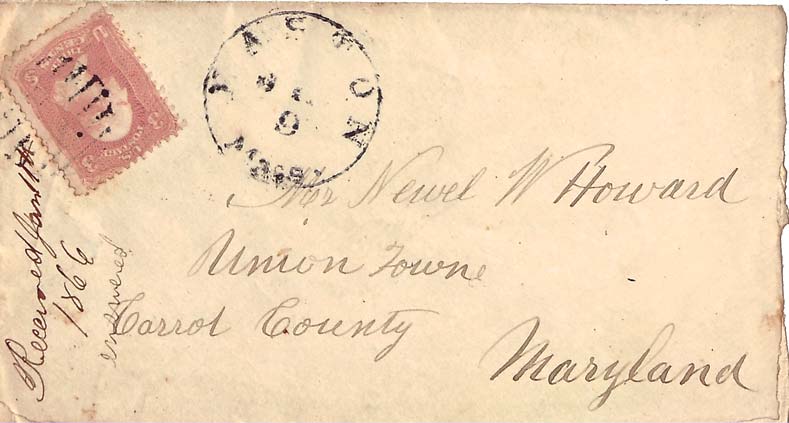 EASTON
9
Mass
3
3
Mr Newel W Howard
Union Towne
Carrol County
Maryland
Received Jan 11th
1866
answered